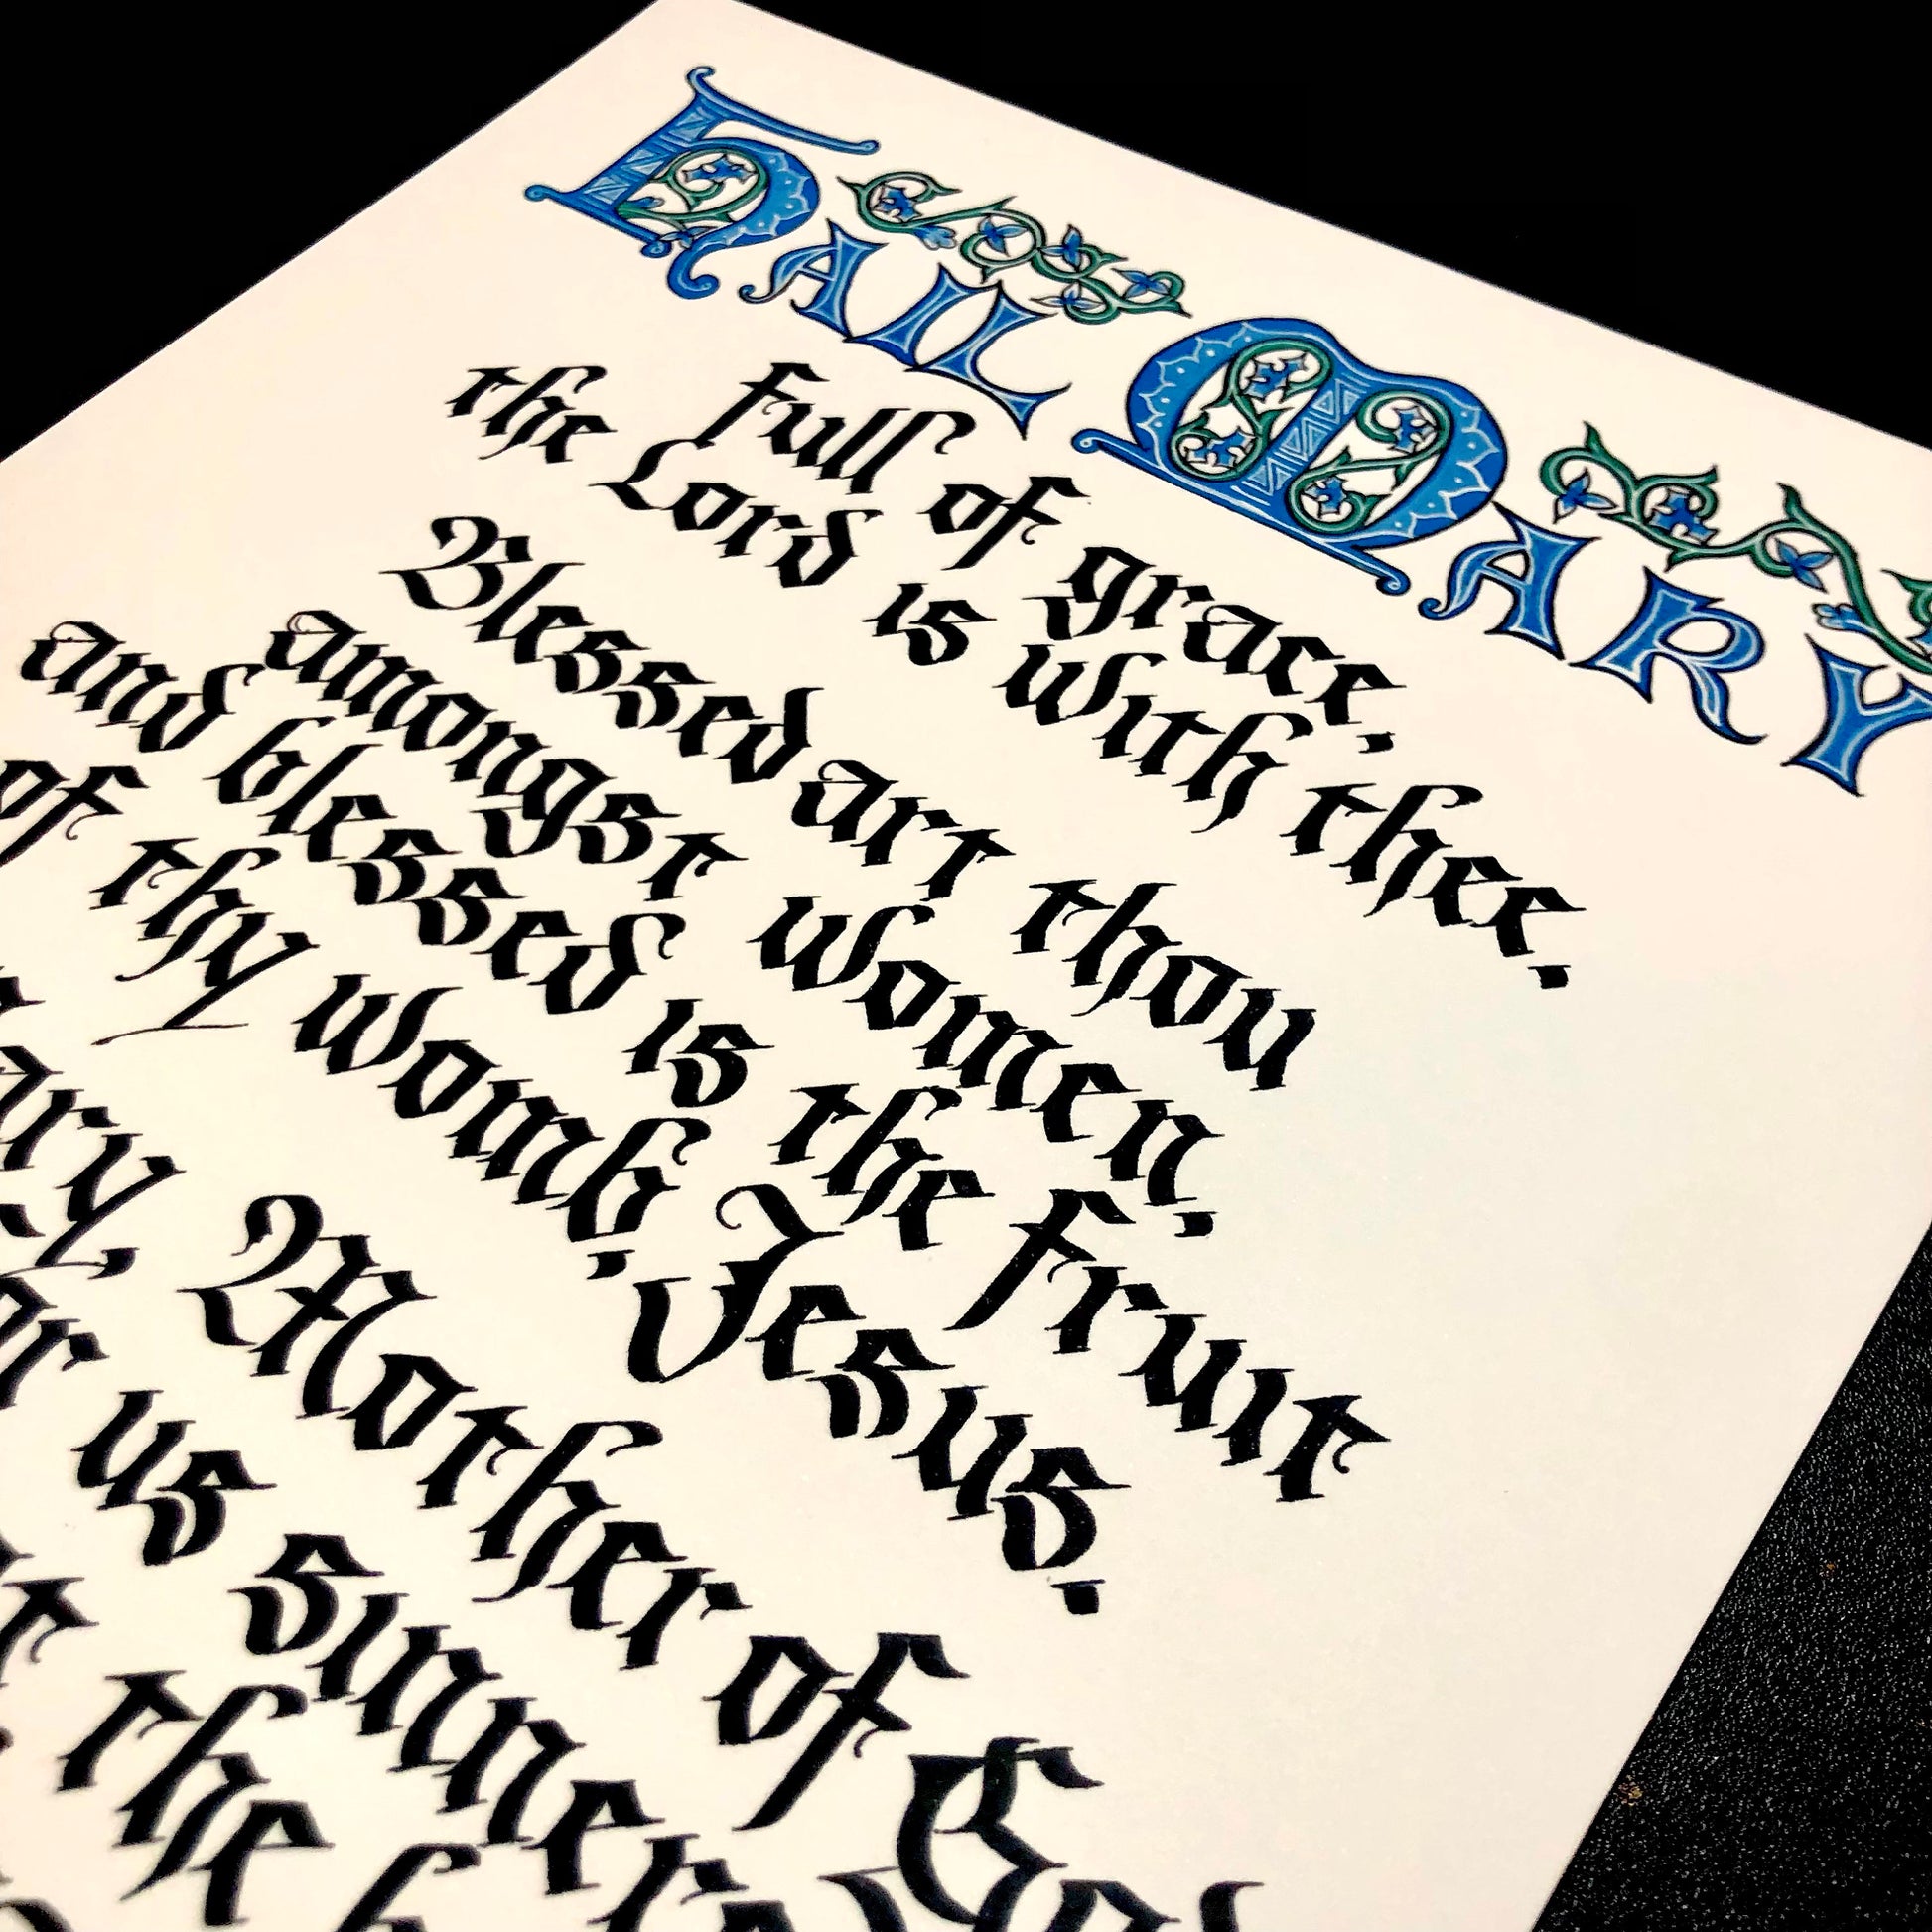 Hail Mary
full of grace,
the Lord is with thee.
Blessed art thou
amongst women,
and blessed is the fruit
of thy womb, Jesus.
Mother of
us sinners
the